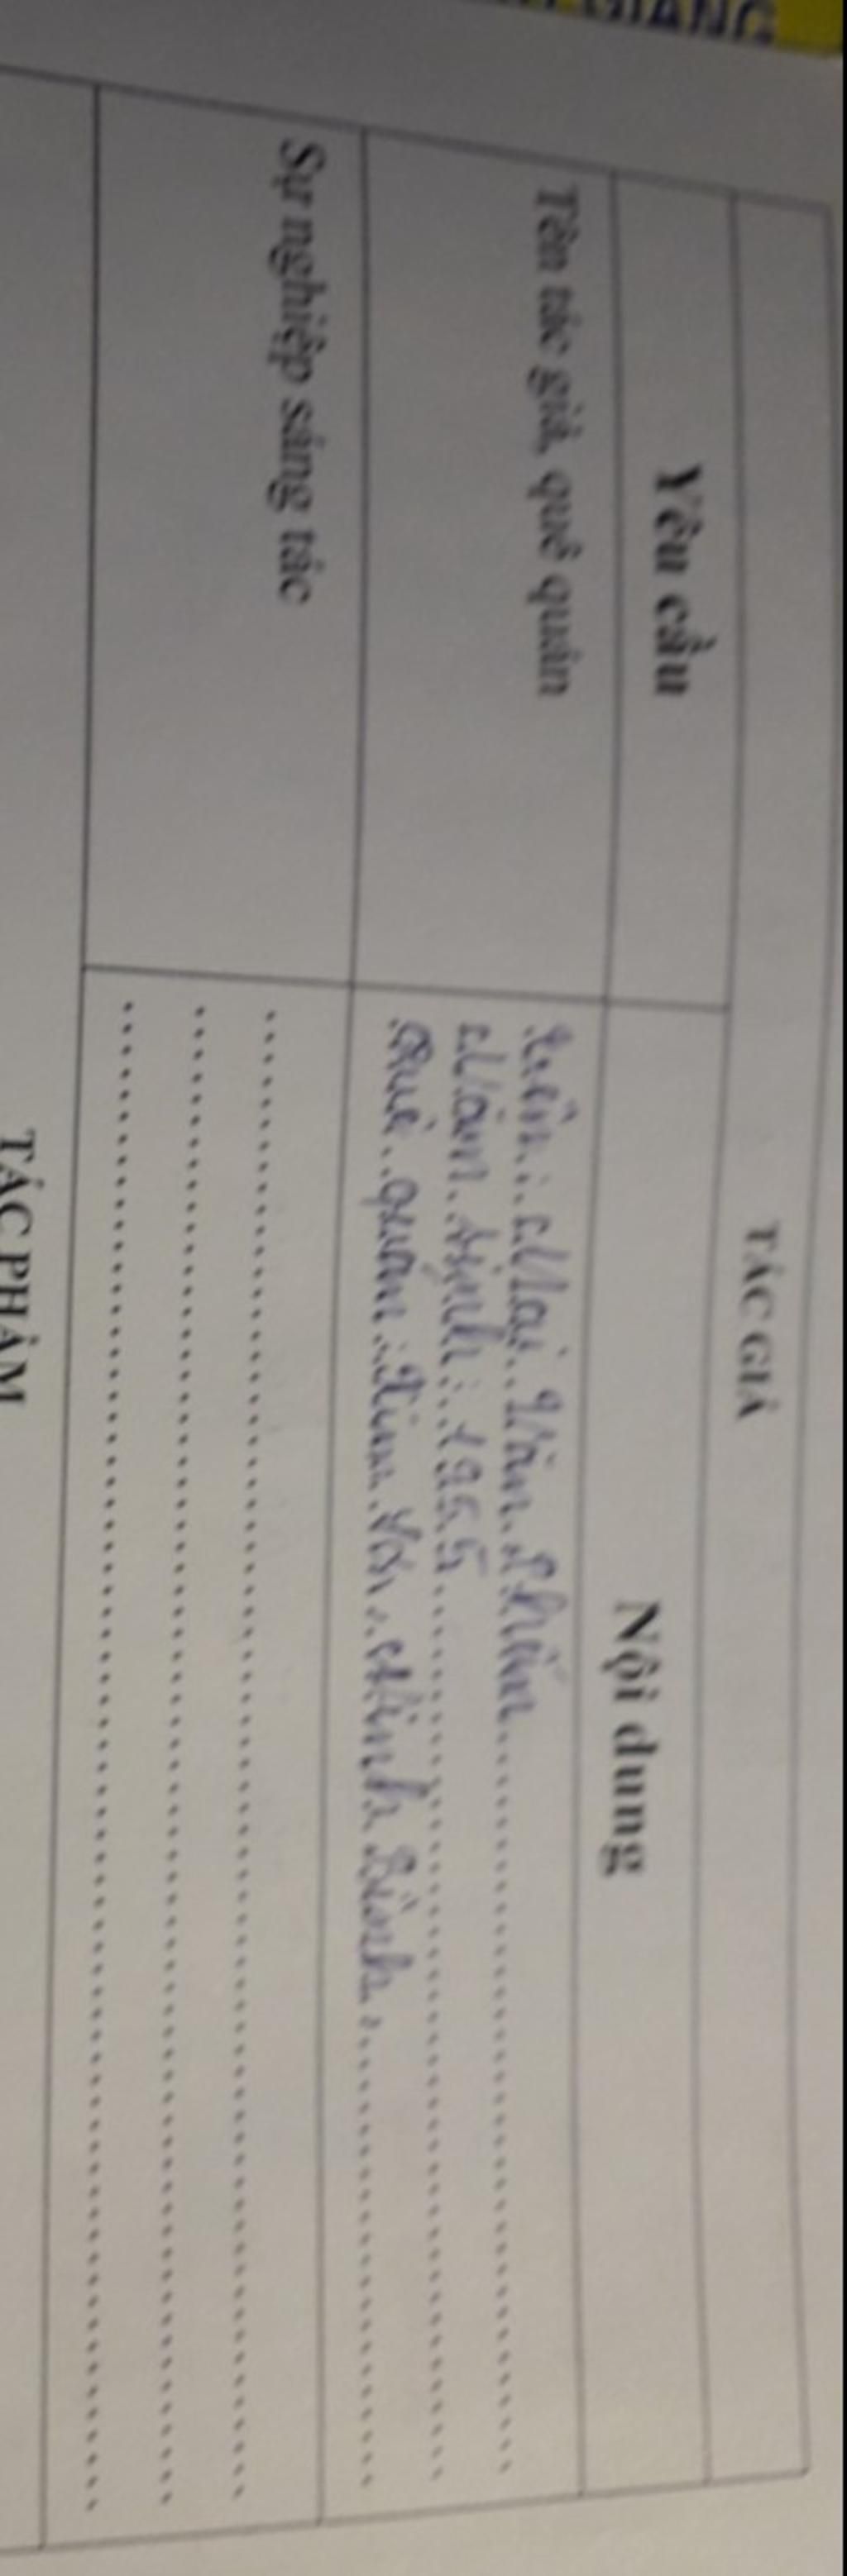 GIANG
TÁC GIẢ
Yêu cầu
Nội dung
Tên tác giả, quê quán
tuên: Mai Văn Phấn
Năm sinh: 1955
Quê quán: Kim Sơn, Ninh Bình.
Sự nghiệp sáng tác
TÁC PHẨM